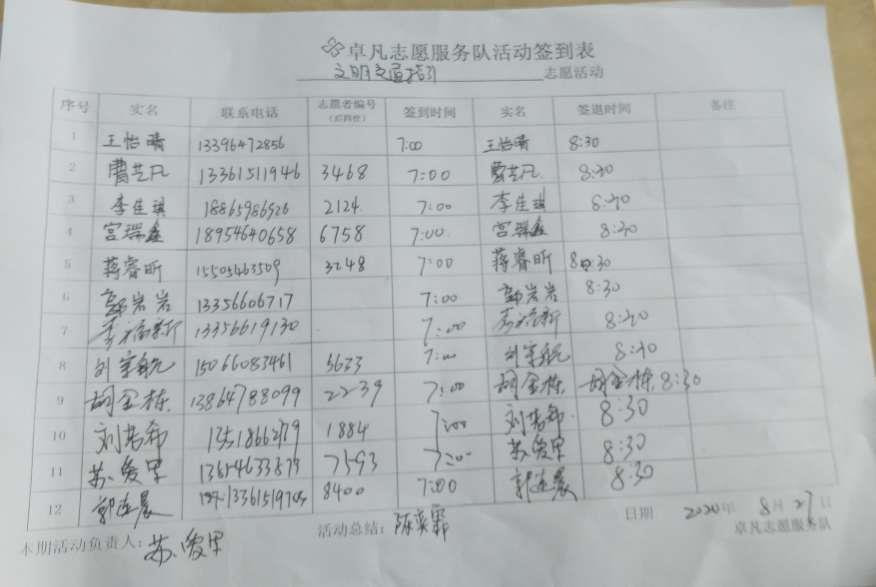 卓凡志愿服务队活动签到表
文明交通指引 志愿活动
序号 实名 联系电话 志愿者编号（后四位） 签到时间 实名 签退时间 备注
1 王怡晴 13396472856 7:00 王怡晴 8:30
2 曹芝凡 13361511946 3468 7:00 曹芝凡 8:30
3 李佳琪 18865986526 2124 7:00 李佳琪 8:30
4 宫瑞鑫 18954640658 6758 7:00 宫瑞鑫 8:30
5 蒋睿昕 15505463509 3248 7:00 蒋睿昕 8:30
6 郭岩岩 13356606717 7:00 郭岩岩 8:30
7 13356619130 7:00 8:30
8 刘宇航 15066083461 3623 7:00 刘宇航 8:30
9 胡金栋 13864788099 2239 7:00 胡金栋 胡金栋 8:30
10 刘若希 1884 7:00 刘若希 8:30
11 苏爱军 7593 7:00 苏爱军 8:30
12 郭连晨 8400 7:00 郭连晨 8:30
日期 2020年 8月 27日
本期活动负责人： 苏爱军 活动总结： 陈奕霏 卓凡志愿服务队